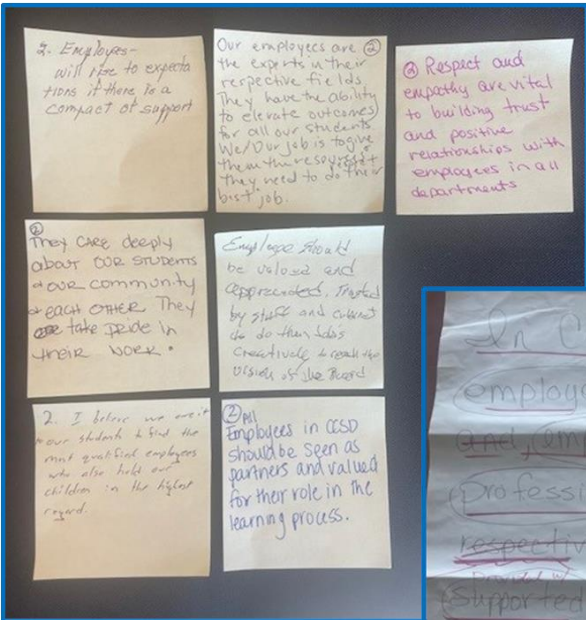 2. Employees-
will rise to expecta
tions if there is a
compact of support
Our employees are ②
the experts in their
respective fields.
They have the ability
to elevate outcomes
for all our students.
We/Our job is to give
them the
they need to do their
best job.
② Respect and
empathy are vital
to building trust
and positive
relationships with
employees in all
departments
②
They CARE deeply
about OUR STUDENTS
+ OUR community
+ EACH OTHER They
take PRIDE in
their WORK.
Employee should
be valued and
appreciated. Trusted
by staff and cabinet
to do their jobs
creatively to reach the
vision of the Board
2. I believe we owe it
to our students to find the
most qualified employees
who also hold our
children in the highest
regard.
② All
Employees in CCSD
should be seen as
partners and valued
for their role in the
learning process.
In C
employe
and, em
professi
respectiv
supported